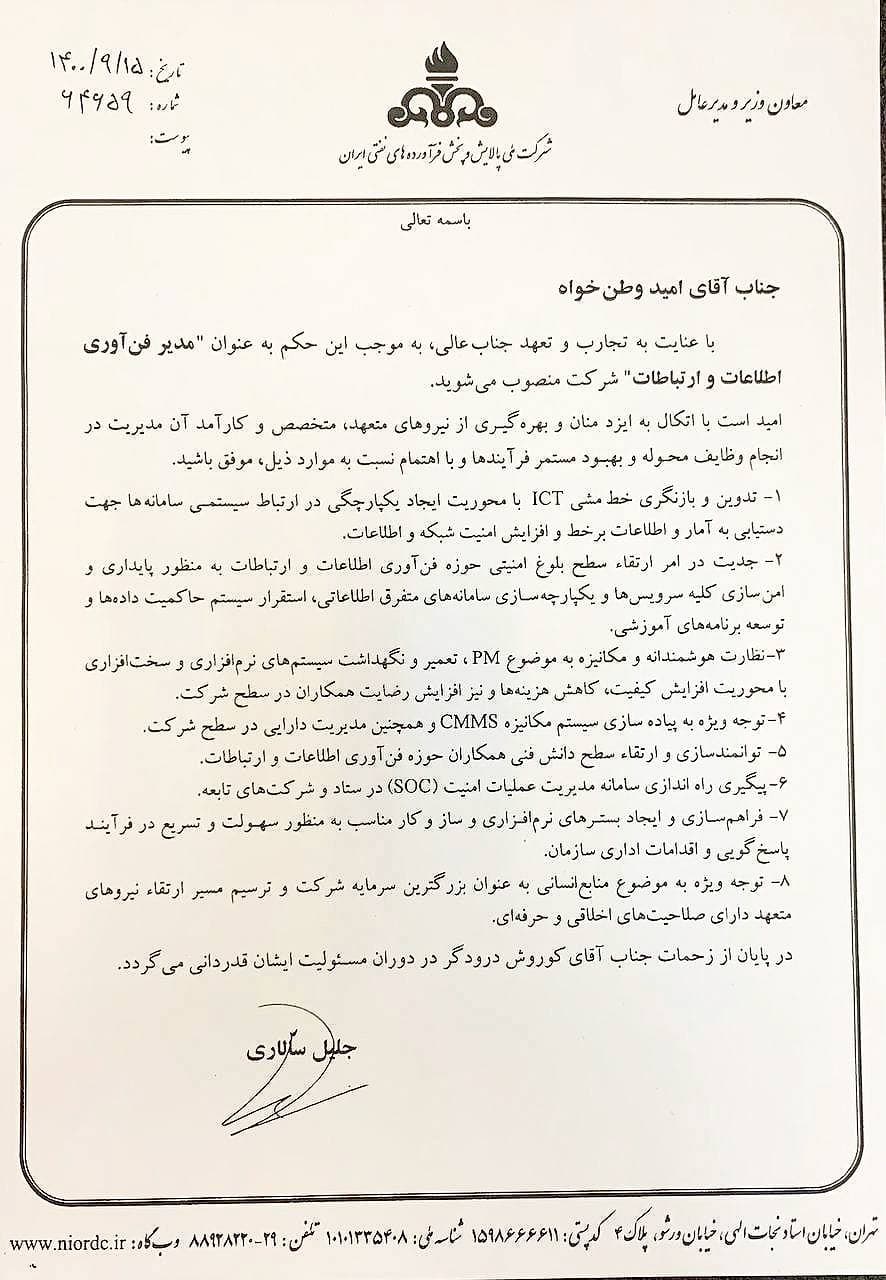 معاون وزیر و مدیرعامل
شرکت ملی پالایش و پخش فرآورده های نفتی ایران
تاریخ: ۱۴۰۰/۹/۱۵
شماره: ۶۴۶۵۹
پیوست:
باسمه تعالی
جناب آقای امید وطن خواه
با عنایت به تجارب و تعهد جناب‌عالی، به موجب این حکم به عنوان "مدیر فن‌آوری
اطلاعات و ارتباطات" شرکت منصوب می‌شوید.
امید است با اتکال به ایزد منان و بهره‌گیری از نیروهای متعهد، متخصص و کارآمد آن مدیریت در
انجام وظایف محوله و بهبود مستمر فرآیندها و با اهتمام نسبت به موارد ذیل، موفق باشید.
۱- تدوین و بازنگری خط مشی ICT با محوریت ایجاد یکپارچگی در ارتباط سیستمی سامانه‌ها جهت
دستیابی به آمار و اطلاعات برخط و افزایش امنیت شبکه و اطلاعات.
۲- جدیت در امر ارتقاء سطح بلوغ امنیتی حوزه فن‌آوری اطلاعات و ارتباطات به منظور پایداری و
امن‌سازی کلیه سرویس‌ها و یکپارچه‌سازی سامانه‌های متفرق اطلاعاتی، استقرار سیستم حاکمیت داده‌ها و
توسعه برنامه‌های آموزشی.
۳-نظارت هوشمندانه و مکانیزه به موضوع PM، تعمیر و نگهداشت سیستم‌های نرم‌افزاری و سخت‌افزاری
با محوریت افزایش کیفیت، کاهش هزینه‌ها و نیز افزایش رضایت همکاران در سطح شرکت.
۴-توجه ویژه به پیاده سازی سیستم مکانیزه CMMS و همچنین مدیریت دارایی در سطح شرکت.
۵- توانمندسازی و ارتقاء سطح دانش فنی همکاران حوزه فن‌آوری اطلاعات و ارتباطات.
۶-پیگیری راه اندازی سامانه مدیریت عملیات امنیت (SOC) در ستاد و شرکت‌های تابعه.
۷- فراهم‌سازی و ایجاد بسترهای نرم‌افزاری و ساز و کار مناسب به منظور سهولت و تسریع در فرآیند
پاسخ‌گویی و اقدامات اداری سازمان.
۸- توجه ویژه به موضوع منابع‌انسانی به عنوان بزرگترین سرمایه شرکت و ترسیم مسیر ارتقاء نیروهای
متعهد دارای صلاحیت‌های اخلاقی و حرفه‌ای.
در پایان از زحمات جناب آقای کوروش درودگر در دوران مسئولیت ایشان قدردانی می‌گردد.
جلیل سالاری
تهران، خیابان استاد نجات الهی، خیابان ورشو، پلاک ۴ کد پستی: ۱۵۹۸۶۶۶۶۱۱ شناسه ملی: ۱۰۱۰۱۳۳۵۴۰۸ تلفن: ۲۹-۸۸۹۲۸۲۲۰ وب گاه: www.niordc.ir